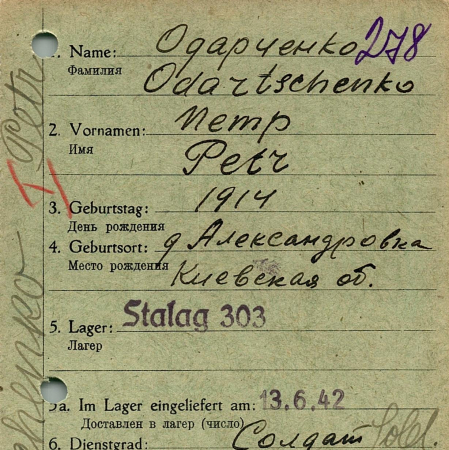 1. Name: Одарченко 278
Фамилия Odartschenko
2. Vornamen: Петр
Имя Petr
3. Geburtstag: 1914
День рождения
4. Geburtsort: д Александровка
Место рождения Киевская об.
5. Lager: Stalag 303
Лагер
5a. Im Lager eingeliefert am: 13.6.42
Доставлен в лагер (число)
6. Dienstgrad: Солдат Sold.
henko Petr